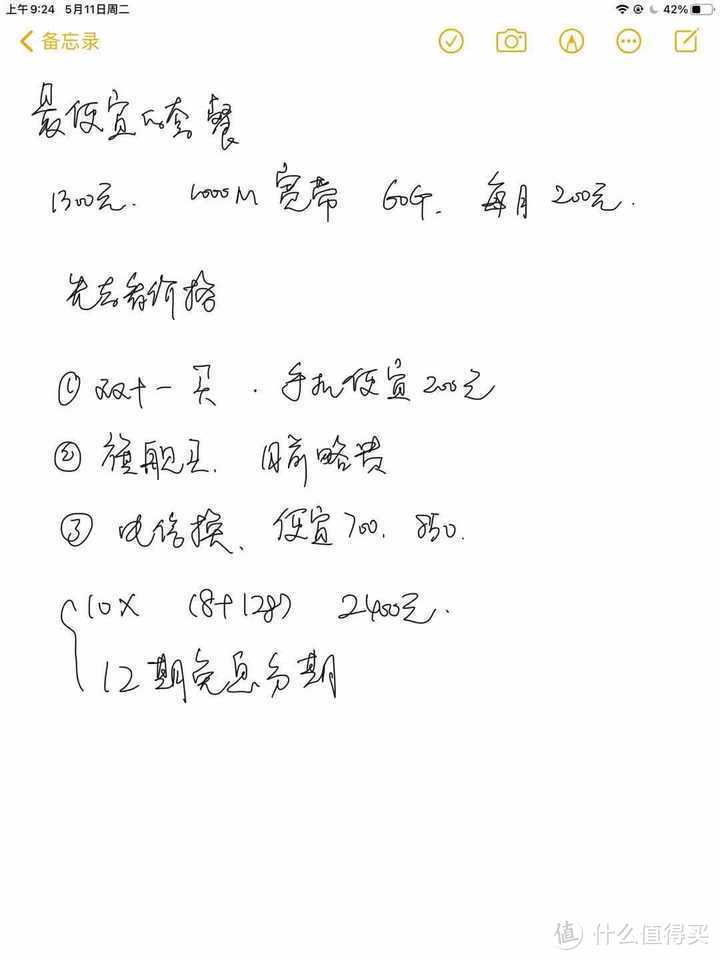 上午9:24 5月11日周二 42%
备忘录
最便宜的套餐
1300元. 1000M宽带 60G. 每月200元.
先去看价格
① 双十一买. 手机便宜200元
② 旗舰店. 目前略贵
③ 电信换、便宜700. 850.
10X (8+128) 2400元.
12期免息分期
值 什么值得买